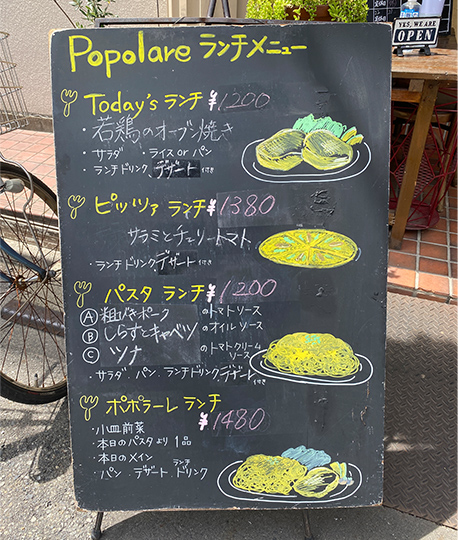 YES, WE ARE
OPEN
Popolare ランチメニュー
Today's ランチ ¥1200
・若鶏のオーブン焼き
・サラダ ・ライス or パン
・ランチドリンク、デザート付き
ピッツァ ランチ ¥1380
サラミとチェリートマト
・ランチドリンク デザート付き
パスタ ランチ ¥1200
Ⓐ 粗びきポーク のトマトソース
Ⓑ しらすとキャベツ のオイルソース
Ⓒ ツナ のトマトクリームソース
・サラダ パン、ランチドリンク、デザート付き
ポポラーレ ランチ
¥1480
・小皿前菜
・本日のパスタより1品
・本日のメイン
・パン デザート ランチドリンク